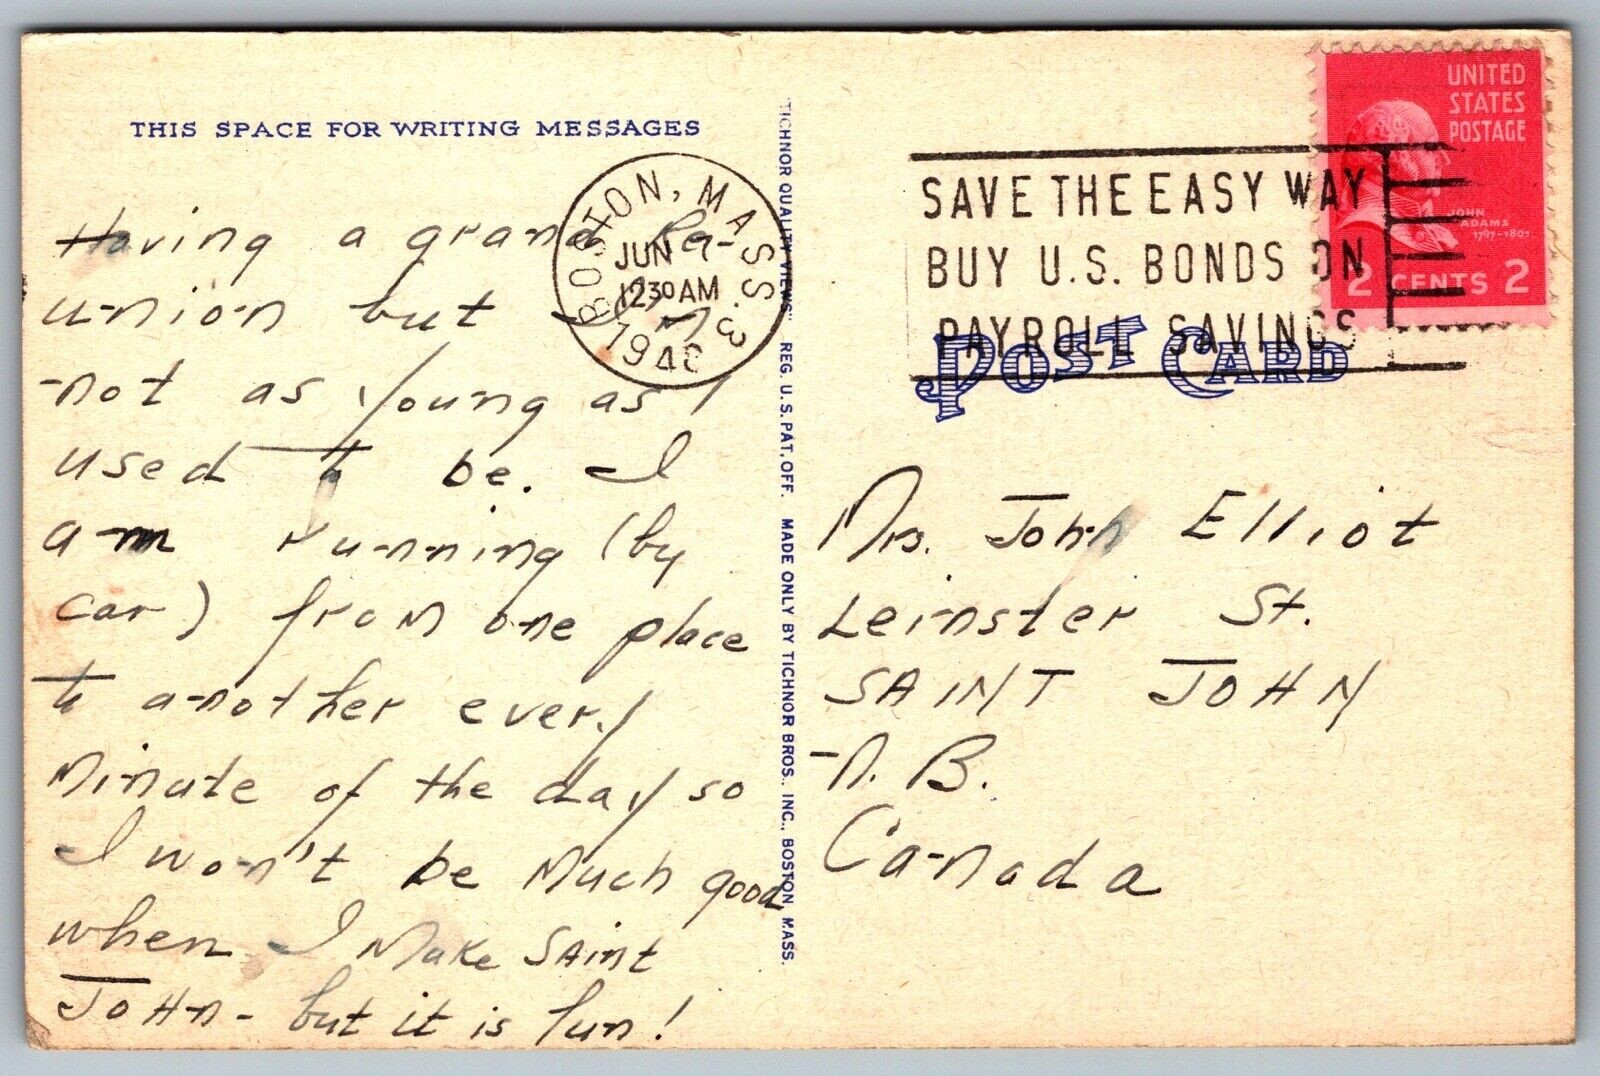 THIS SPACE FOR WRITING MESSAGES
Having a grand Re-
union but I'm
not as young as I
used to be. I
am running (by
car) from one place
to another every
minute of the day so
I won't be much good
when I make Saint
John - but it is fun!
BOSTON, MASS. 3
JUN 7
1230 AM
"TICHNOR QUALITY VIEWS" REG. U.S. PAT. OFF. MADE ONLY BY TICHNOR BROS. INC., BOSTON, MASS.
SAVE THE EASY WAY
BUY U.S. BONDS ON
PAYROLL SAVINGS
UNITED
STATES
POSTAGE
JOHN
ADAMS
1797-1801
2 CENTS 2
POST CARD
Mrs. John Elliot
Leinster St.
SAINT JOHN
N. B.
Canada